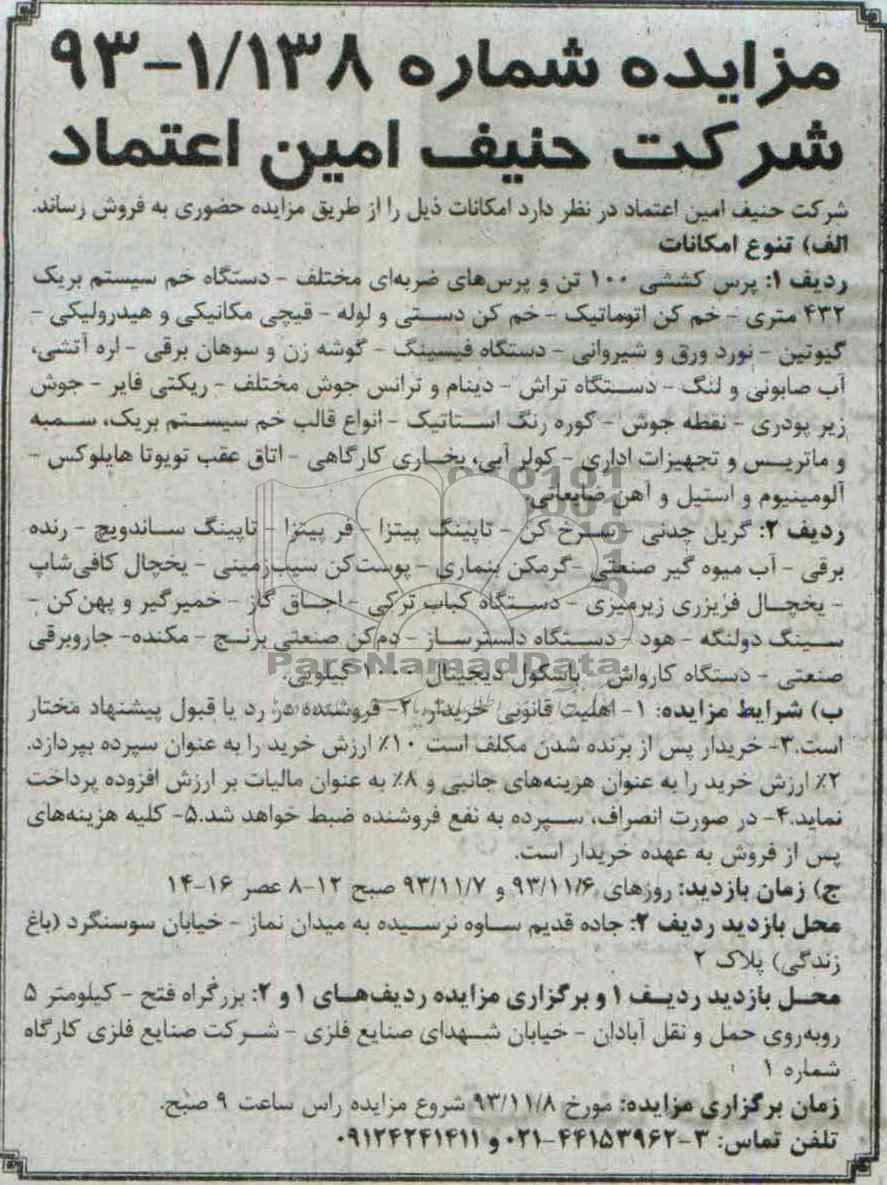 مزایده شماره ۹۳-۱/۱۳۸
شرکت حنیف امین اعتماد
شرکت حنیف امین اعتماد در نظر دارد امکانات ذیل را از طریق مزایده حضوری به فروش رساند.
الف) تنوع امکانات
ردیف ۱: پرس کششی ۱۰۰ تن و پرس‌های ضربه‌ای مختلف - دستگاه خم سیستم بریک
۴۳۲ متری - خم کن اتوماتیک - خم کن دستی و لوله - قیچی مکانیکی و هیدرولیکی -
گیوتین - نورد ورق و شیروانی - دستگاه فیسینگ - گوشه زن و سوهان برقی - اره آتشی،
آب صابونی و لنگ - دستگاه تراش - دینام و ترانس جوش مختلف - ریکتی فایر - جوش
زیر پودری - نقطه جوش - کوره رنگ استاتیک - انواع قالب خم سیستم بریک، سمبه
و ماتریس و تجهیزات اداری - کولر آبی، بخاری کارگاهی - اتاق عقب تویوتا هایلوکس -
آلومینیوم و استیل و آهن ضایعاتی.
ردیف ۲: گریل چدنی - سرخ کن - تاپینگ پیتزا - فر پیتزا - تاپینگ ساندویچ - رنده
برقی - آب میوه گیر صنعتی -گرمکن بنماری - پوست‌کن سیب‌زمینی - یخچال کافی‌شاپ
- یخچال فریزری زیرمیزی - دستگاه کباب ترکی - اجاق گاز - خمیرگیر و پهن‌کن -
سینگ دولنگه - هود - دستگاه دلسترساز - دم‌کن صنعتی برنج - مکنده- جاروبرقی
صنعتی - دستگاه کارواش - باسکول دیجیتال ۱۰۰۰ کیلویی.
ParsNamadData
ب) شرایط مزایده: ۱- اهلیت قانونی خریدار. ۲- فروشنده در رد یا قبول پیشنهاد مختار
است.۳- خریدار پس از برنده شدن مکلف است ۱۰٪ ارزش خرید را به عنوان سپرده بپردازد.
۲٪ ارزش خرید را به عنوان هزینه‌های جانبی و ۸٪ به عنوان مالیات بر ارزش افزوده پرداخت
نماید.۴- در صورت انصراف، سپرده به نفع فروشنده ضبط خواهد شد.۵- کلیه هزینه‌های
پس از فروش به عهده خریدار است.
ج) زمان بازدید: روزهای ۹۳/۱۱/۶ و ۹۳/۱۱/۷ صبح ۱۲-۸ عصر ۱۶-۱۴
محل بازدید ردیف ۲: جاده قدیم ساوه نرسیده به میدان نماز - خیابان سوسنگرد (باغ
زندگی) پلاک ۲
محل بازدید ردیف ۱ و برگزاری مزایده ردیف‌های ۱ و ۲: بزرگراه فتح - کیلومتر ۵
روبه‌روی حمل و نقل آبادان - خیابان شهدای صنایع فلزی - شرکت صنایع فلزی کارگاه
شماره ۱
زمان برگزاری مزایده: مورخ ۹۳/۱۱/۸ شروع مزایده راس ساعت ۹ صبح.
تلفن تماس: ۳-۴۴۱۵۳۹۶۲-۰۲۱ و ۰۹۱۲۴۲۴۱۴۱۱